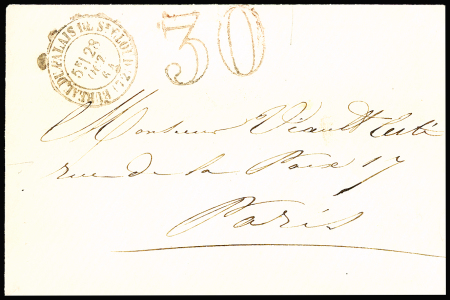 BUREAU DU PALAIS DE ST CLOUD
5E 28 OCT 64
30
Monsieur
rue de la Paix 17
Paris